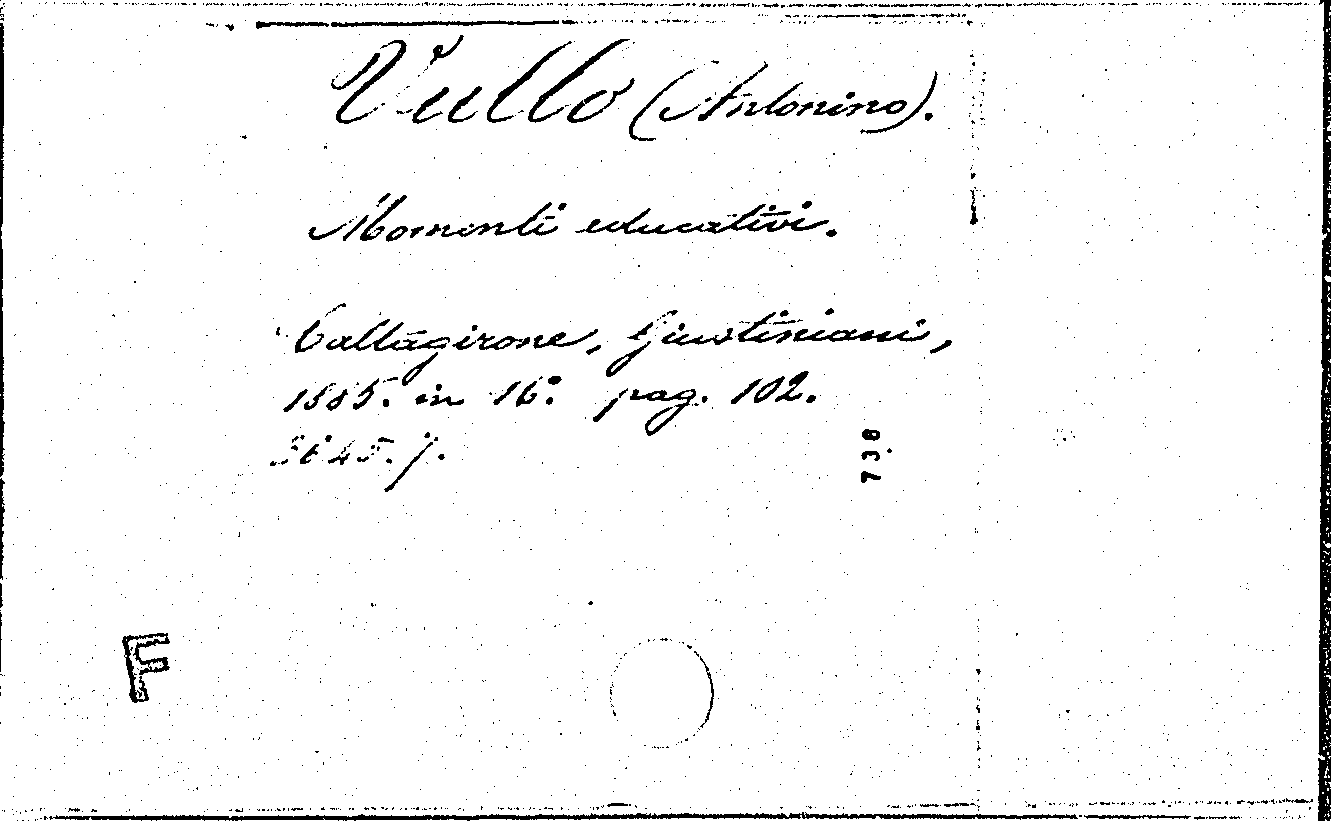 Vullo (Antonino).
Momenti educativi.
Caltagirone, Giustiniani,
1885. in 16.º pag. 102.
5645.7.
738
F